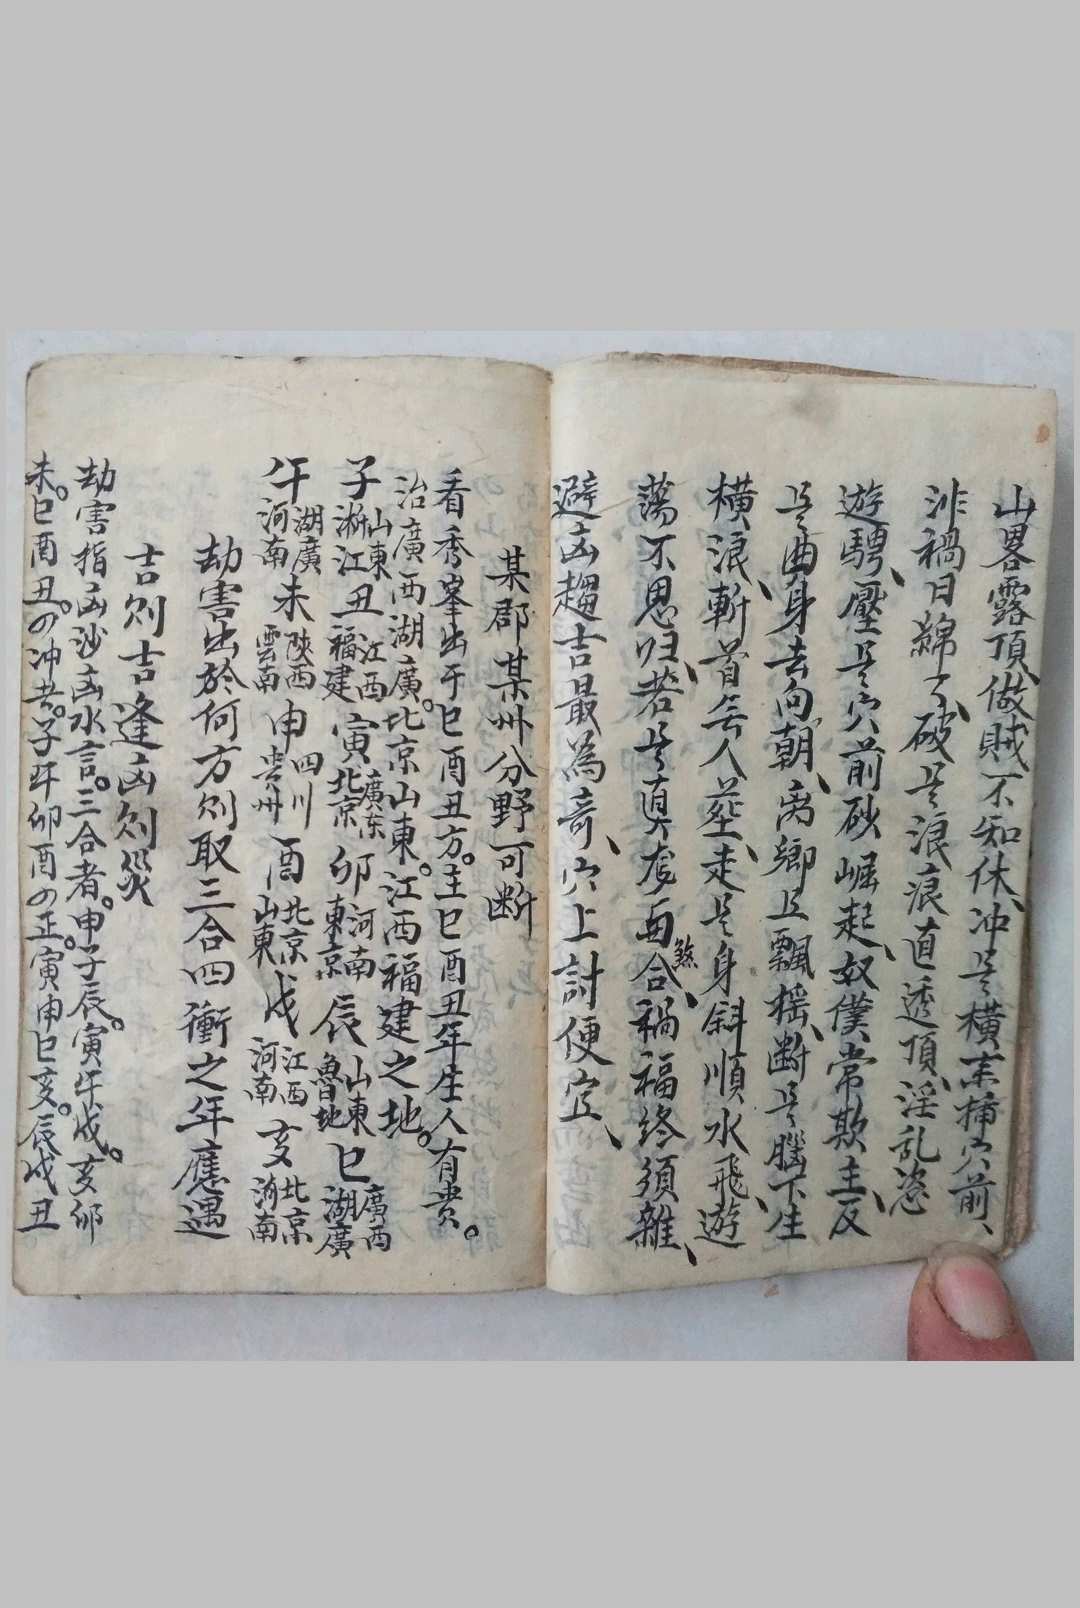 山畧露頂、做賊不知休、冲是橫來插穴前、
非禍日綿々、破是浪浪直透頂、淫乱恣
遊騁、壓是穴前砂崛起、奴僕常欺主、反
是曲身去向朝、离鄉且飄搖、断是腦下生
橫浪、斬首無人塟、走是身斜順水飛、遊
蕩不思归、若是真龙要合煞、禍福終須雜、
避凶趨吉最為奇、穴上討便宜、
某郡某州分野可断
看秀峯出于巳酉丑方。主巳酉丑年生人有貴。
治廣西湖廣。北京山東。江西福建之地。
子 山東浙江 丑 江西福建 寅 廣东北京 卯 河南東京 辰 山東魯地 巳 廣西湖廣
午 湖廣河南 未 陝西雲南 申 四川貴州 酉 北京山東 戌 江西河南 亥 北京渝南
劫害出於何方則取三合四衝之年應遇
吉則吉逢凶則災
劫害指凶沙凶水言。三合者。申子辰。寅午戌。亥卯
未。巳酉丑。四冲者。子午卯酉四正。寅申巳亥。辰戌丑